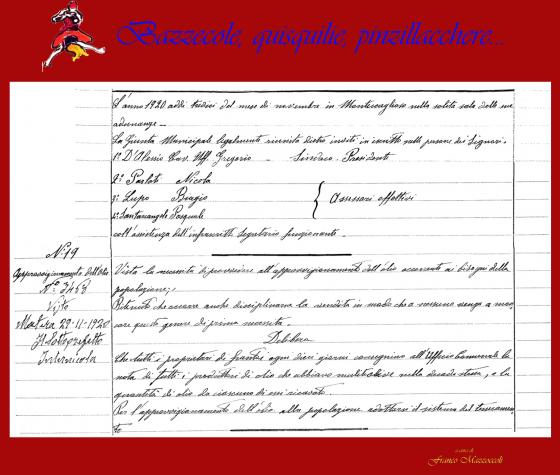 Bazzecole, quisquilie, pinzillacchere...
L'anno 1920 addì tredici del mese di novembre in Montescaglioso nella solita sala delle sue
adunanze -
La Giunta Municipale legalmente riunita dietro inviti in iscritto nelle persone dei Signori:
1° D'Alessio Cav. Uff. Gregorio - Sindaco - Presidente
2° Parlati Nicola
3° Lupo Biagio
Assessori effettivi
4° Santarcangelo Pasquale
coll'assistenza dell'infrascritto Segretario funzionante -
N° 19
Approvvigionamento dell'olio
N° 3468
Visto
Matera 29-11-1920
Il Sottoprefetto
Vista la necessità di provvedere all'approvvigionamento dell'olio occorrente ai bisogni della
popolazione;
Ritenuto che occorre anche disciplinare la vendita in modo che nessuno venga a man-
care questo genere di prima necessità -
Delibera
Che tutti i proprietari di frantoi ogni dieci giorni consegnino all'Ufficio Comunale la
nota di tutti i produttori di olio che abbiano nella decade stessa, e la
quantità di olio da ciascuno di essi ricavato.
Per l'approvvigionamento dell'olio alla popolazione adottarsi il sistema del tesseramen-
to
a cura di
Franco Mazzoccoli